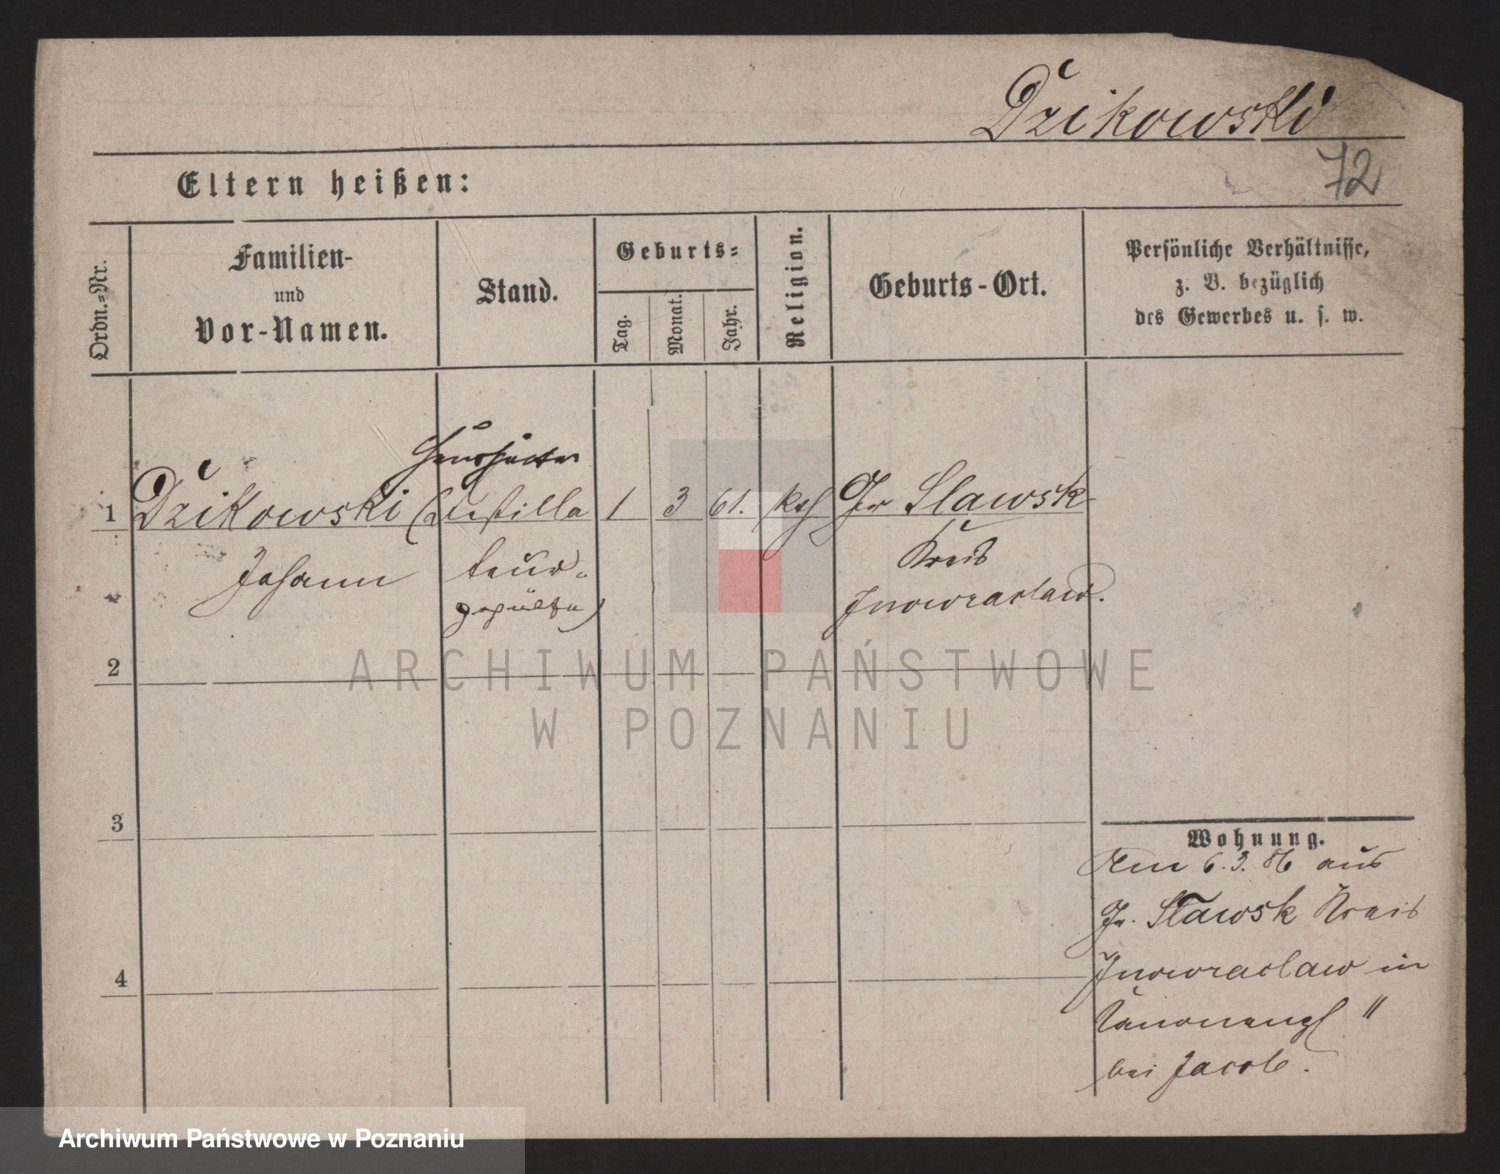 Dzikowski
72
Eltern heißen:
Ordn.=Nr.
Familien-
und
Vor-Namen.
Stand.
Geburts=
Tag.
Monat.
Jahr.
Religion.
Geburts-Ort.
Persönliche Verhältnisse,
z. B. bezüglich
des Gewerbes u. s. w.
1 Dzikowski (Destilla 1 3 61. kth Gr Slawsk
Johann teur- Kreis
gehülfe) Inowraclaw.
2
3
4
Wohnung.
Am 6.3.86 aus
Gr. Slawsk Kreis
Inowraclaw in
Kanoneng "
bei Jacob.
ARCHIWUM PAŃSTWOWE
W POZNANIU
Archiwum Państwowe w Poznaniu